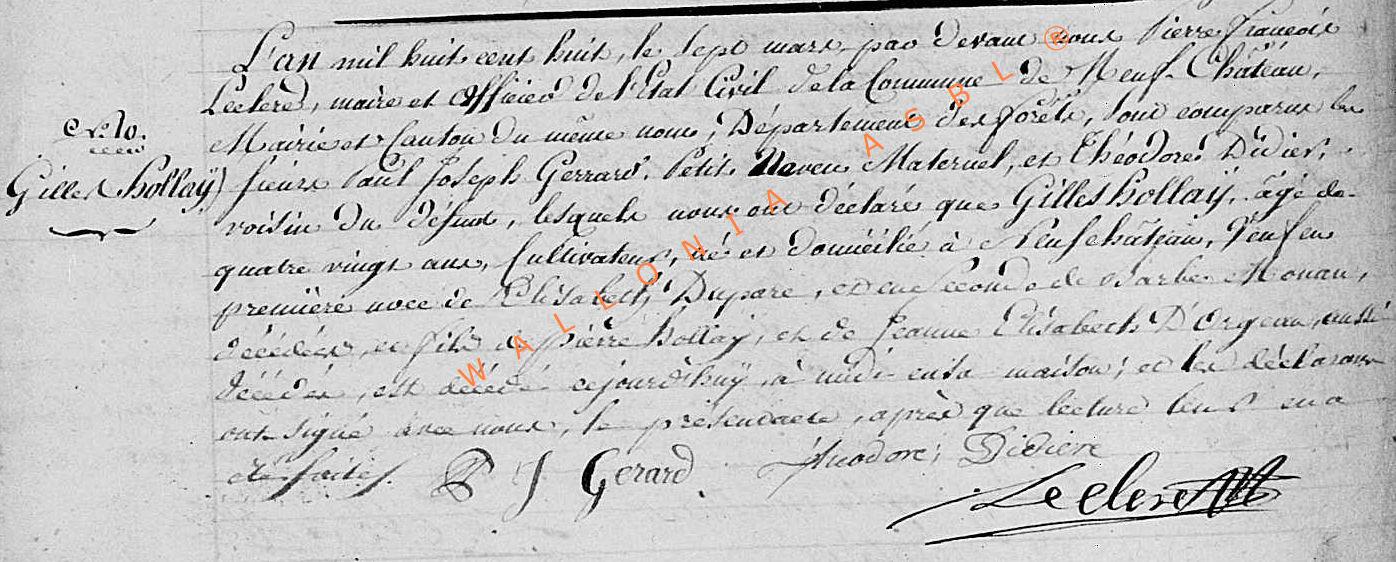 L'an mil huit cent huit, le sept mars par devant nous Pierre François
Leclerc, maire et Officier de l'Etat Civil de la Commune de Neuf-Château,
Mairie et Canton du même nom, Département des forêts, sont comparus les
N.° 10.
Gilles Hollaÿ
sieurs Paul Joseph Gerrard, Petit Neveu Maternel, et Théodore Didier,
voisin du défunt, lesquels nous ont déclaré que Gilles hollaÿ, âgé de
quatre vingt ans, Cultivateur, né et domicilié à Neufchâteau, Veuf en
première noce de Elisabeth Dupare, et en seconde de Barbe Nonan,
décédées, et fils de Pierre hollaÿ, et de Jeanne Elisabeth D'Orgeau, aussi
décédés, est décédé cejourd'huÿ, à midi en sa maison; et les déclarans
ont signé avec nous, le présent acte, après que lecture leur en a
été faite.
P J Gerard
théodore Didiere
Leclerc
WALLONIA ASBL ®